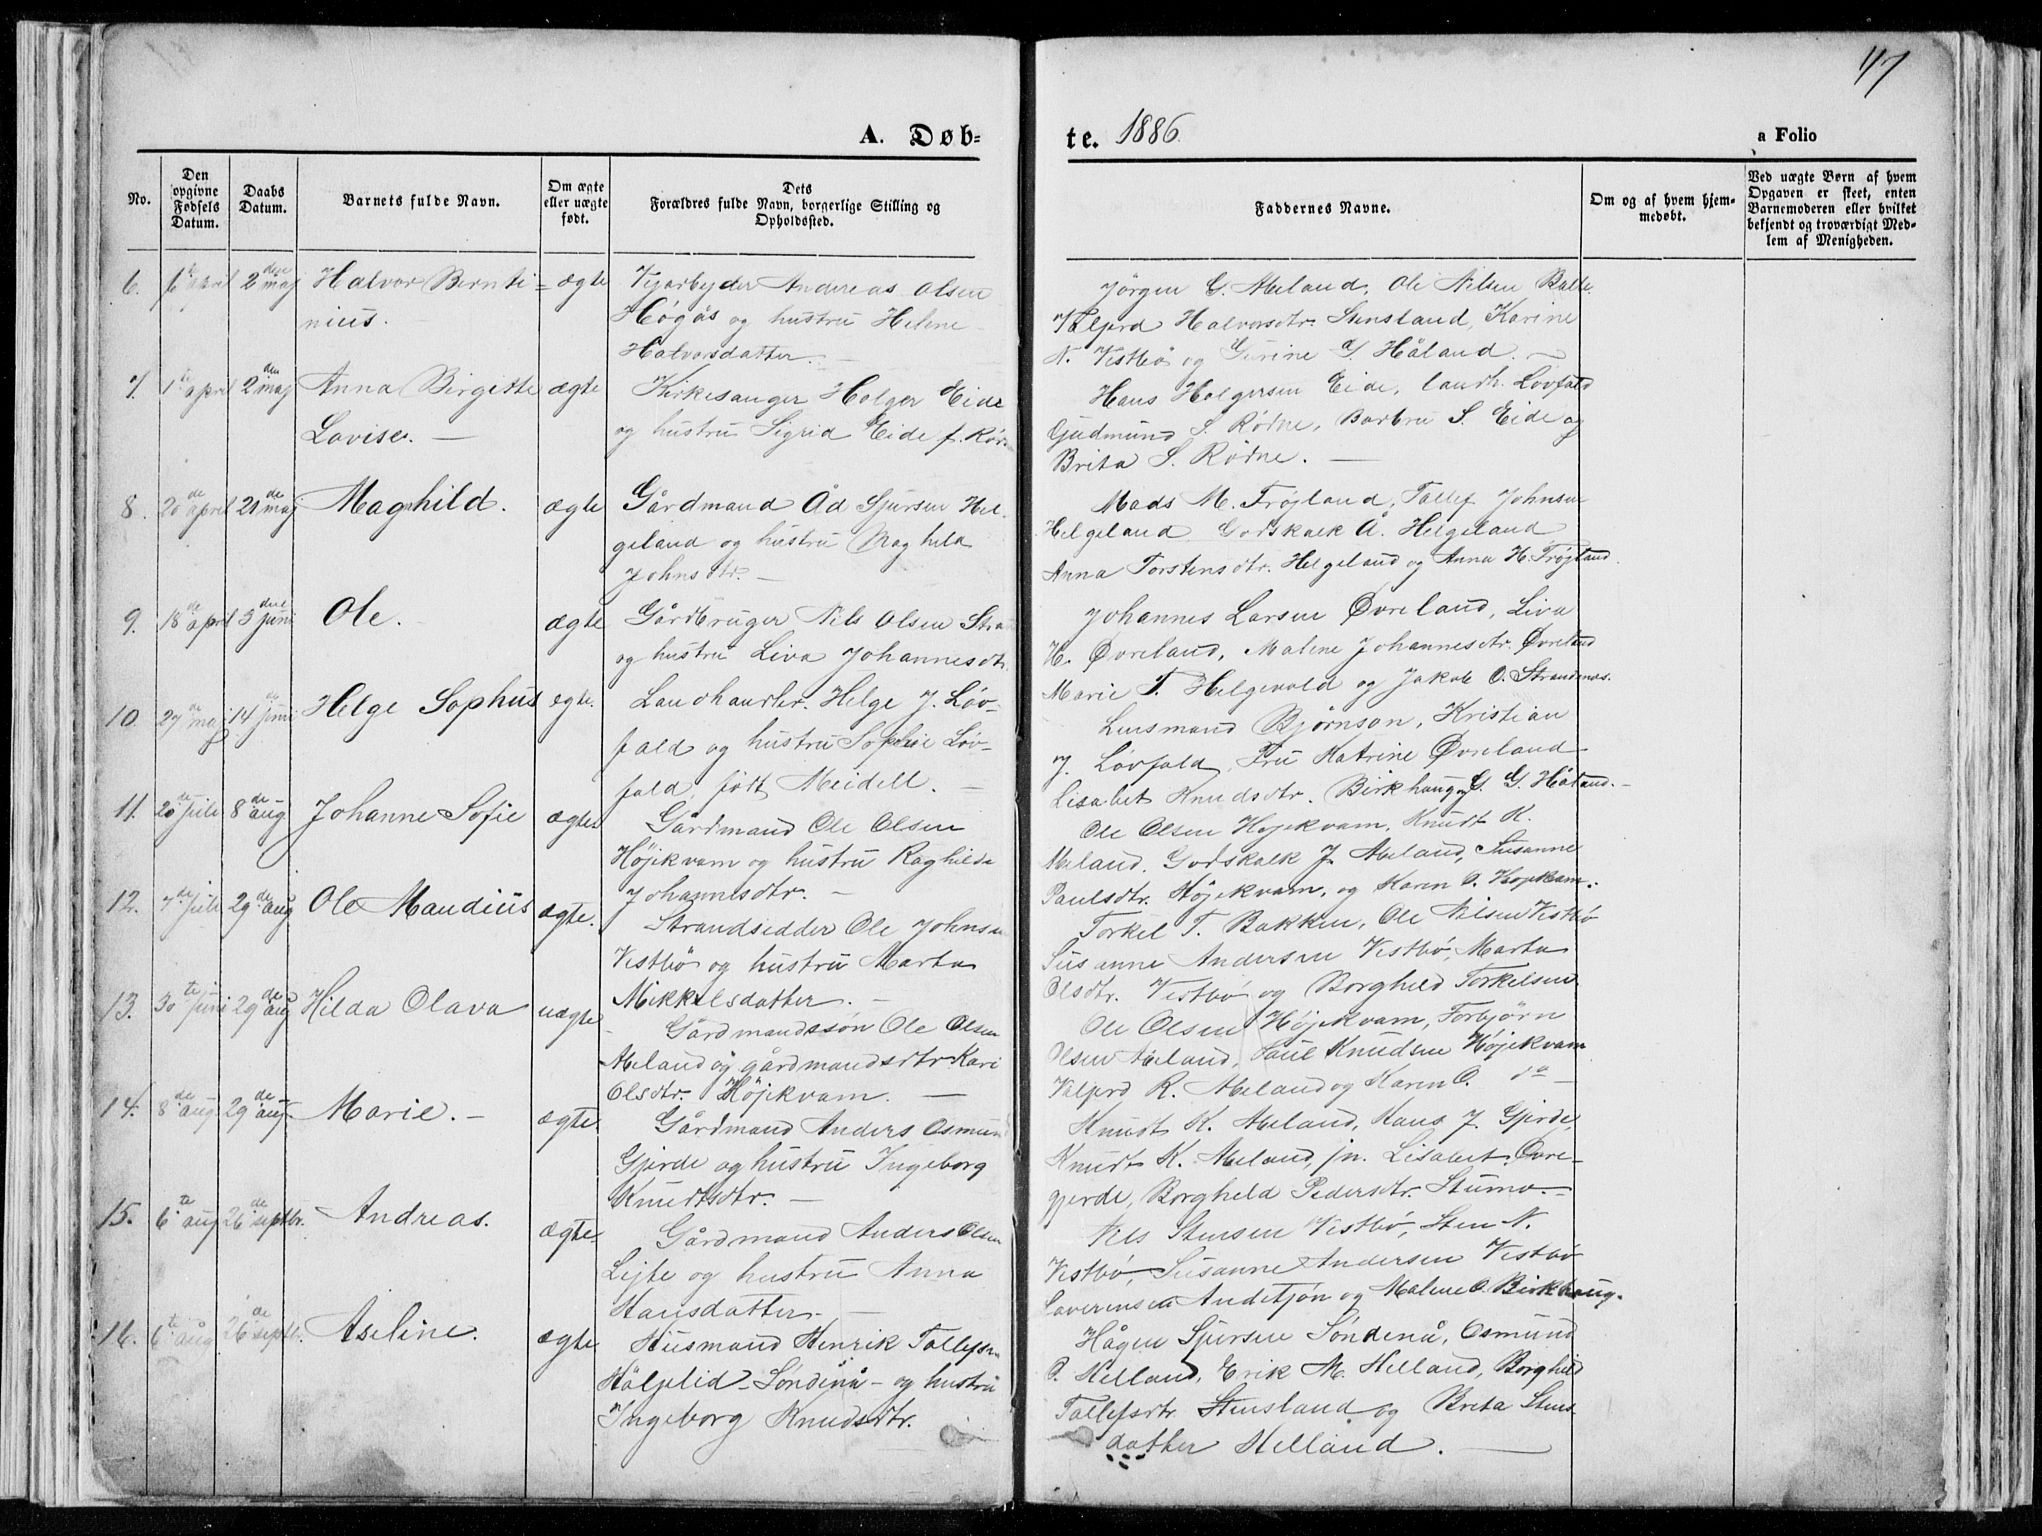 117
A. Døb-
te. 1886.
a Folio
No.
Den opgivne Fødsels Datum.
Daabs Datum.
Barnets fulde Navn.
Om ægte eller uægte født.
Dets Forældres fulde Navn, borgerlige Stilling og Opholdssted.
Faddernes Navne.
Om og af hvem hjemmedøbt.
Ved uægte Børn af hvem Opgaven er skeet, enten Barnemoderen eller hvilket bekjendt og troværdigt Medlem af Menigheden.
6. april 2den maj Halvor Bernti- ægte Vejarbejder Andreas Olsen
nius. Högås og hustru Helene
Halvorsdatter. —
Jörgen G. Meland, Ole Nilsen Bakke
Valjerd Halvorsdtr. Stensland, Karine
N. Vestbö og Gurine G. Håland. —
7. 1te april 2den maj Anna Birgitte ægte Kirkesanger Holger Eide
Lovise. — og hustru Sigrid Eide f. Röd
Hans Holgersen Eide, landh. Lövfald
Gudmund S. Rödne, Barbru S. Eide og
Brita S. Rödne. —
8. 20de april 21de maj Maghild. ægte Gårdmand Åd Sjursen Hel-
geland og hustru Maghild
Johnsdtr. —
Mads M. Fröjland, Tollef Johnsen
Helgeland Godskalk Å. Helgeland
Anna Torstensdtr. Helgeland og Anna H. Fröjland.
9. 18de april 3die juni Ole. ægte Gårdbruger Nils Olsen Stra
og hustru Liva Johannesdtr.
Johannes Larsen Øvreland, Liva
H. Øvreland, Malene Johannesdtr. Øvreland
Marie T. Helgevold og Jakob O. Strandenæs.
10. 27de maj 14de juni Helge Sophus ægte. Landhandler. Helge J. Löv-
fald og hustru Sophie Löv-
fald, født Meidell. —
Lensmand Björnson, Kristian
J. Lövfald, Fru Katrine Øvreland
Lisabet Knudsdtr. Birkhaug og G. G. Håland. —
11. 20de juli 8de aug Johanne Sofie ægte Gårdmand Ole Olsen
Höjekvam og hustru Raghilda
Johannesdtr. —
Ole Olsen Höjekvam, Knudt K.
Meland. Godskalk J. Meland, Susanne
Paulsdtr. Höjekvam, og Karen O. Höjekvam.
12. 7de juli 29de aug Ole Mandius ægte. Strandsidder Ole Johnsen
Vestbö og hustru Marta
Mikkelsdatter. —
Torkel T. Bakken, Ole Nilsen Vestbö
Susanne Andersen Vestbö, Marta
Olsdtr. Vestbö og Borghild Torkelsen.
13. 30te juni 29de aug Hilda Olava uægte Gårdmandssön Ole Olsen
Meland og gårdmandsdtr Kari
Olsdtr. Höjekvam. —
Ole Olsen Höjekvam, Torbjörn
Olsen Meland, Paul Knudsen Höjekvam
Valjerd R. Meland og Karen O. do —
14. 8de aug. 29de aug. Marie. — ægte Gårdmand Anders Osmund
Gjerde og hustru Ingeborg
Knudtsdtr. —
Knudt K. Meland, Hans J. Gjerde,
Knudt K. Meland, jn. Lisabet Øvre-
gjerde, Borghild Pedersdtr. Stumo. —
15. 6te aug 26de septbr. Andreas. ægte Gårdmand Anders Olsen
Lejte og hustru Anna
Hansdatter. —
Nils Stensen Vestbö, Sten N.
Vestbö, Susanne Andersen Vestbö
Andetjön og Malene O. Birkhaug.
16. 6te aug 26de septb. Aseline. ægte Husmand Henrik Tollefsen
Håljelid Söndenå — og hustru
Ingeborg Knudsdtr.
Hågen Sjursen Söndenå, Osmund
P. Helland, Erik M. Helland, Borghild
Tollefsdtr. Stensland og Brita Stens
datter Helland. —